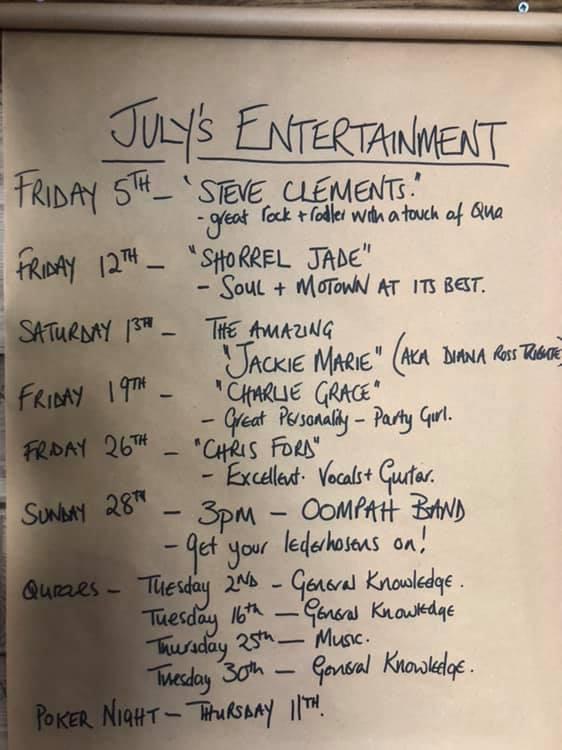 JULY'S ENTERTAINMENT
FRIDAY 5TH - "STEVE CLEMENTS."
- great rock + roller with a touch of Quo
FRIDAY 12TH - "SHORREL JADE"
- SOUL + MOTOWN AT ITS BEST.
SATURDAY 13TH - THE AMAZING
"JACKIE MARIE" (AKA DIANA ROSS TRIBUTE)
FRIDAY 19TH - "CHARLIE GRACE"
- Great Personality - Party Girl.
FRIDAY 26TH - "CHRIS FORD"
- Excellent. Vocals + Guitar.
SUNDAY 28TH - 3PM - OOMPAH BAND
- get your lederhosens on!
QUIZZES - Tuesday 2ND - General Knowledge.
Tuesday 16th - General Knowledge
Thursday 25th - Music.
Tuesday 30th - General Knowledge.
POKER NIGHT - THURSDAY 11TH.